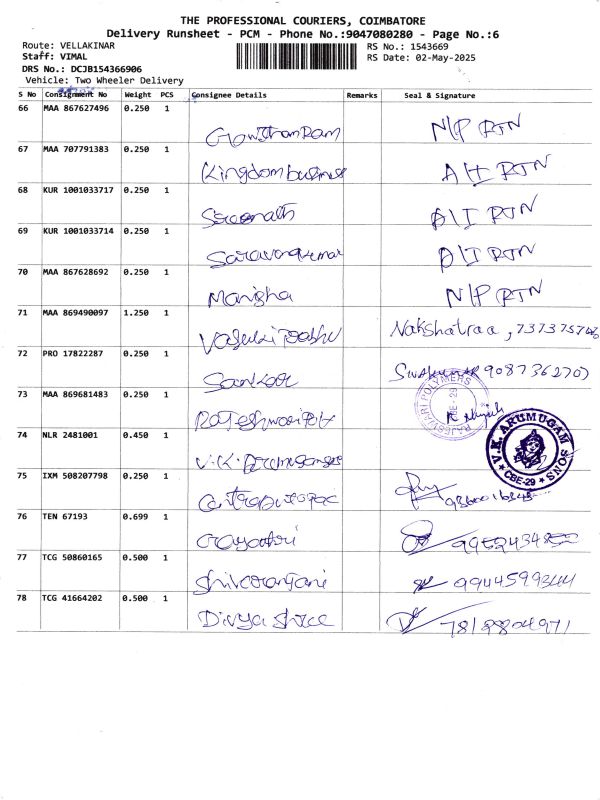 THE PROFESSIONAL COURIERS, COIMBATORE
Delivery Runsheet - PCM - Phone No.:9047080280 - Page No.:6
Route: VELLAKINAR
Staff: VIMAL
DRS No.: DCJB154366906
Vehicle: Two Wheeler Delivery
RS No.: 1543669
RS Date: 02-May-2025
S No Consignment No Weight PCS Consignee Details Remarks Seal & Signature
66 MAA 867627496 0.250 1
Gowtham Ram N/P RTN
67 MAA 707791383 0.250 1
Kingdom A/I RTN
68 KUR 1001033717 0.250 1
A/I RTN
69 KUR 1001033714 0.250 1
Saravanakumar A/I RTN
70 MAA 867628692 0.250 1
Manisha N/P RTN
71 MAA 869490097 1.250 1
Nakshatraa,
72 PRO 17822287 0.250 1
9087362707
73 MAA 869681483 0.250 1
RAJESHWARI POLYMERS
CBE-29
74 NLR 2481001 0.450 1
V.K. ARUMUGAM SONS
CBE-29
75 IXM 508207798 0.250 1
76 TEN 67193 0.699 1
Gayathri
77 TCG 50860165 0.500 1
Shivaranjani
78 TCG 41664202 0.500 1
Divya Shree